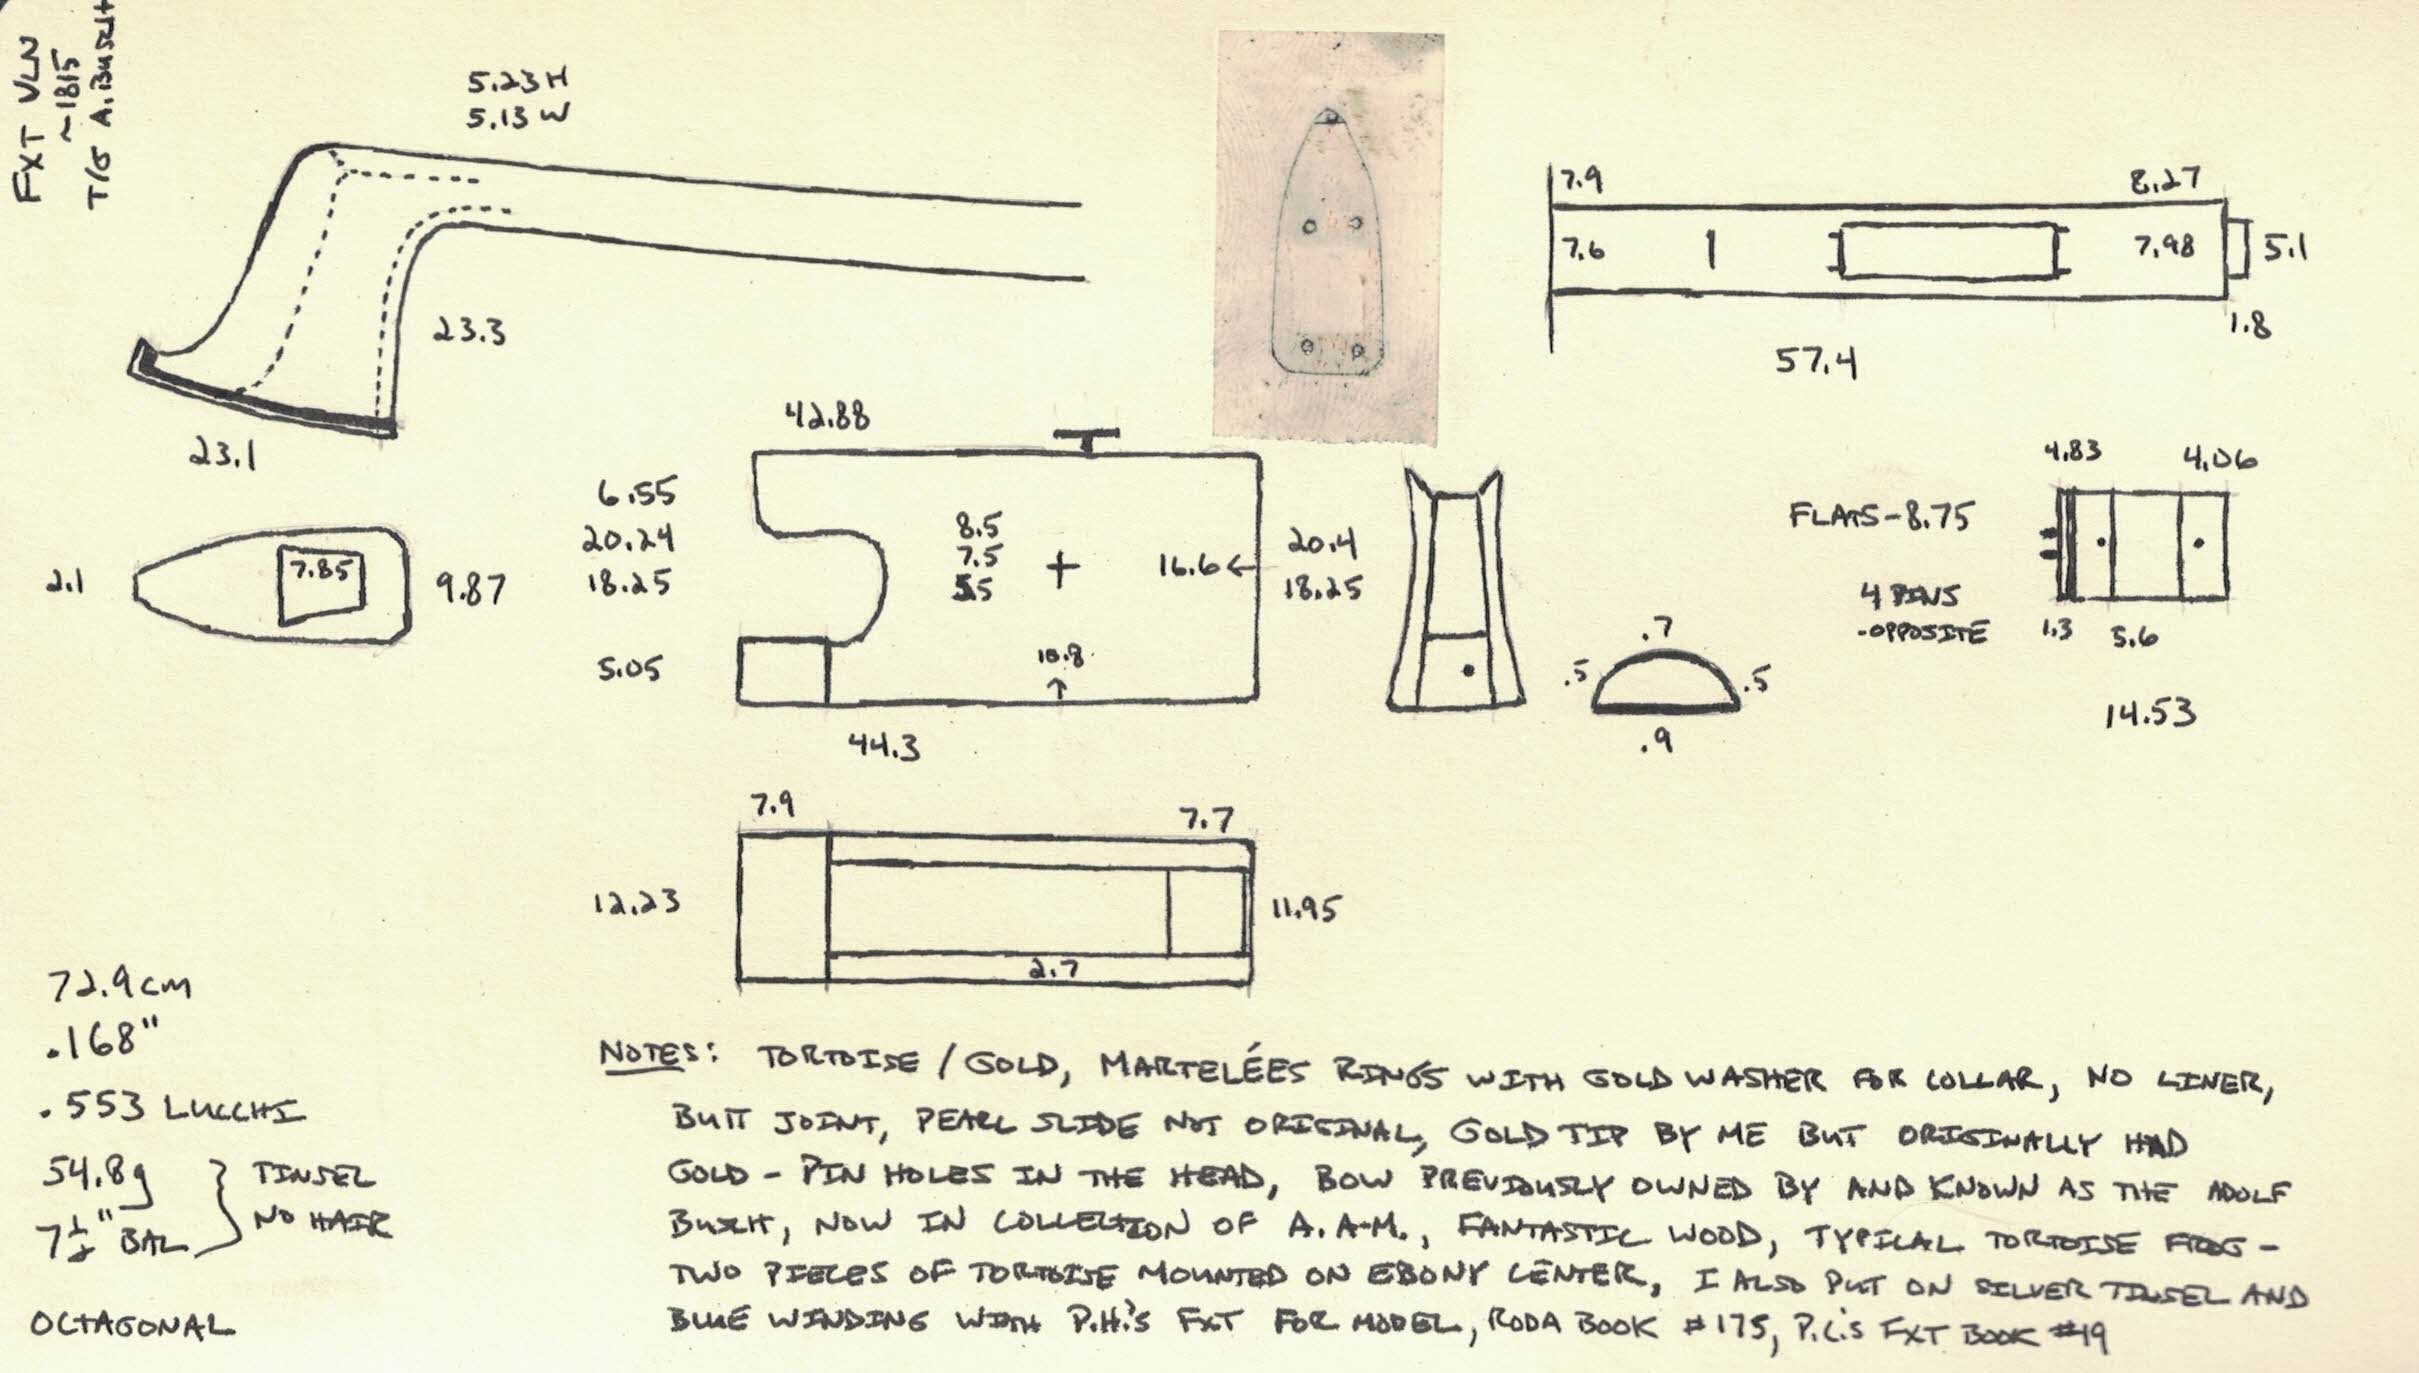 FXT VLN
~1815
T/G A. BUSCH
5.23 H
5.13 W
23.3
23.1
7.9
8.27
7.6
7.98
5.1
1.8
57.4
42.88
6.55
20.24
18.25
8.5
7.5
5.5
16.6 ←
20.4
18.25
5.05
10.8
↑
44.3
2.1
7.85
9.87
.7
.5
.5
.9
4.83
4.06
FLATS - 8.75
4 PINS
- OPPOSITE
1.3
5.6
14.53
7.9
7.7
12.23
11.95
2.7
72.9 cm
.168"
.553 LUCCHI
54.8g } TINSEL
7½" BAL NO HAIR
OCTAGONAL
NOTES: TORTOISE / GOLD, MARTELÉES RINGS WITH GOLD WASHER FOR COLLAR, NO LINER,
BUTT JOINT, PEARL SLIDE NOT ORIGINAL, GOLD TIP BY ME BUT ORIGINALLY HAD
GOLD - PIN HOLES IN THE HEAD, BOW PREVIOUSLY OWNED BY AND KNOWN AS THE ADOLF
BUSCH, NOW IN COLLECTION OF A.A-M., FANTASTIC WOOD, TYPICAL TORTOISE FROG -
TWO PIECES OF TORTOISE MOUNTED ON EBONY CENTER, I ALSO PUT ON SILVER TINSEL AND
BLUE WINDING WITH P.H.'S FXT FOR MODEL, RODA BOOK #175, P.C.'S FXT BOOK #19